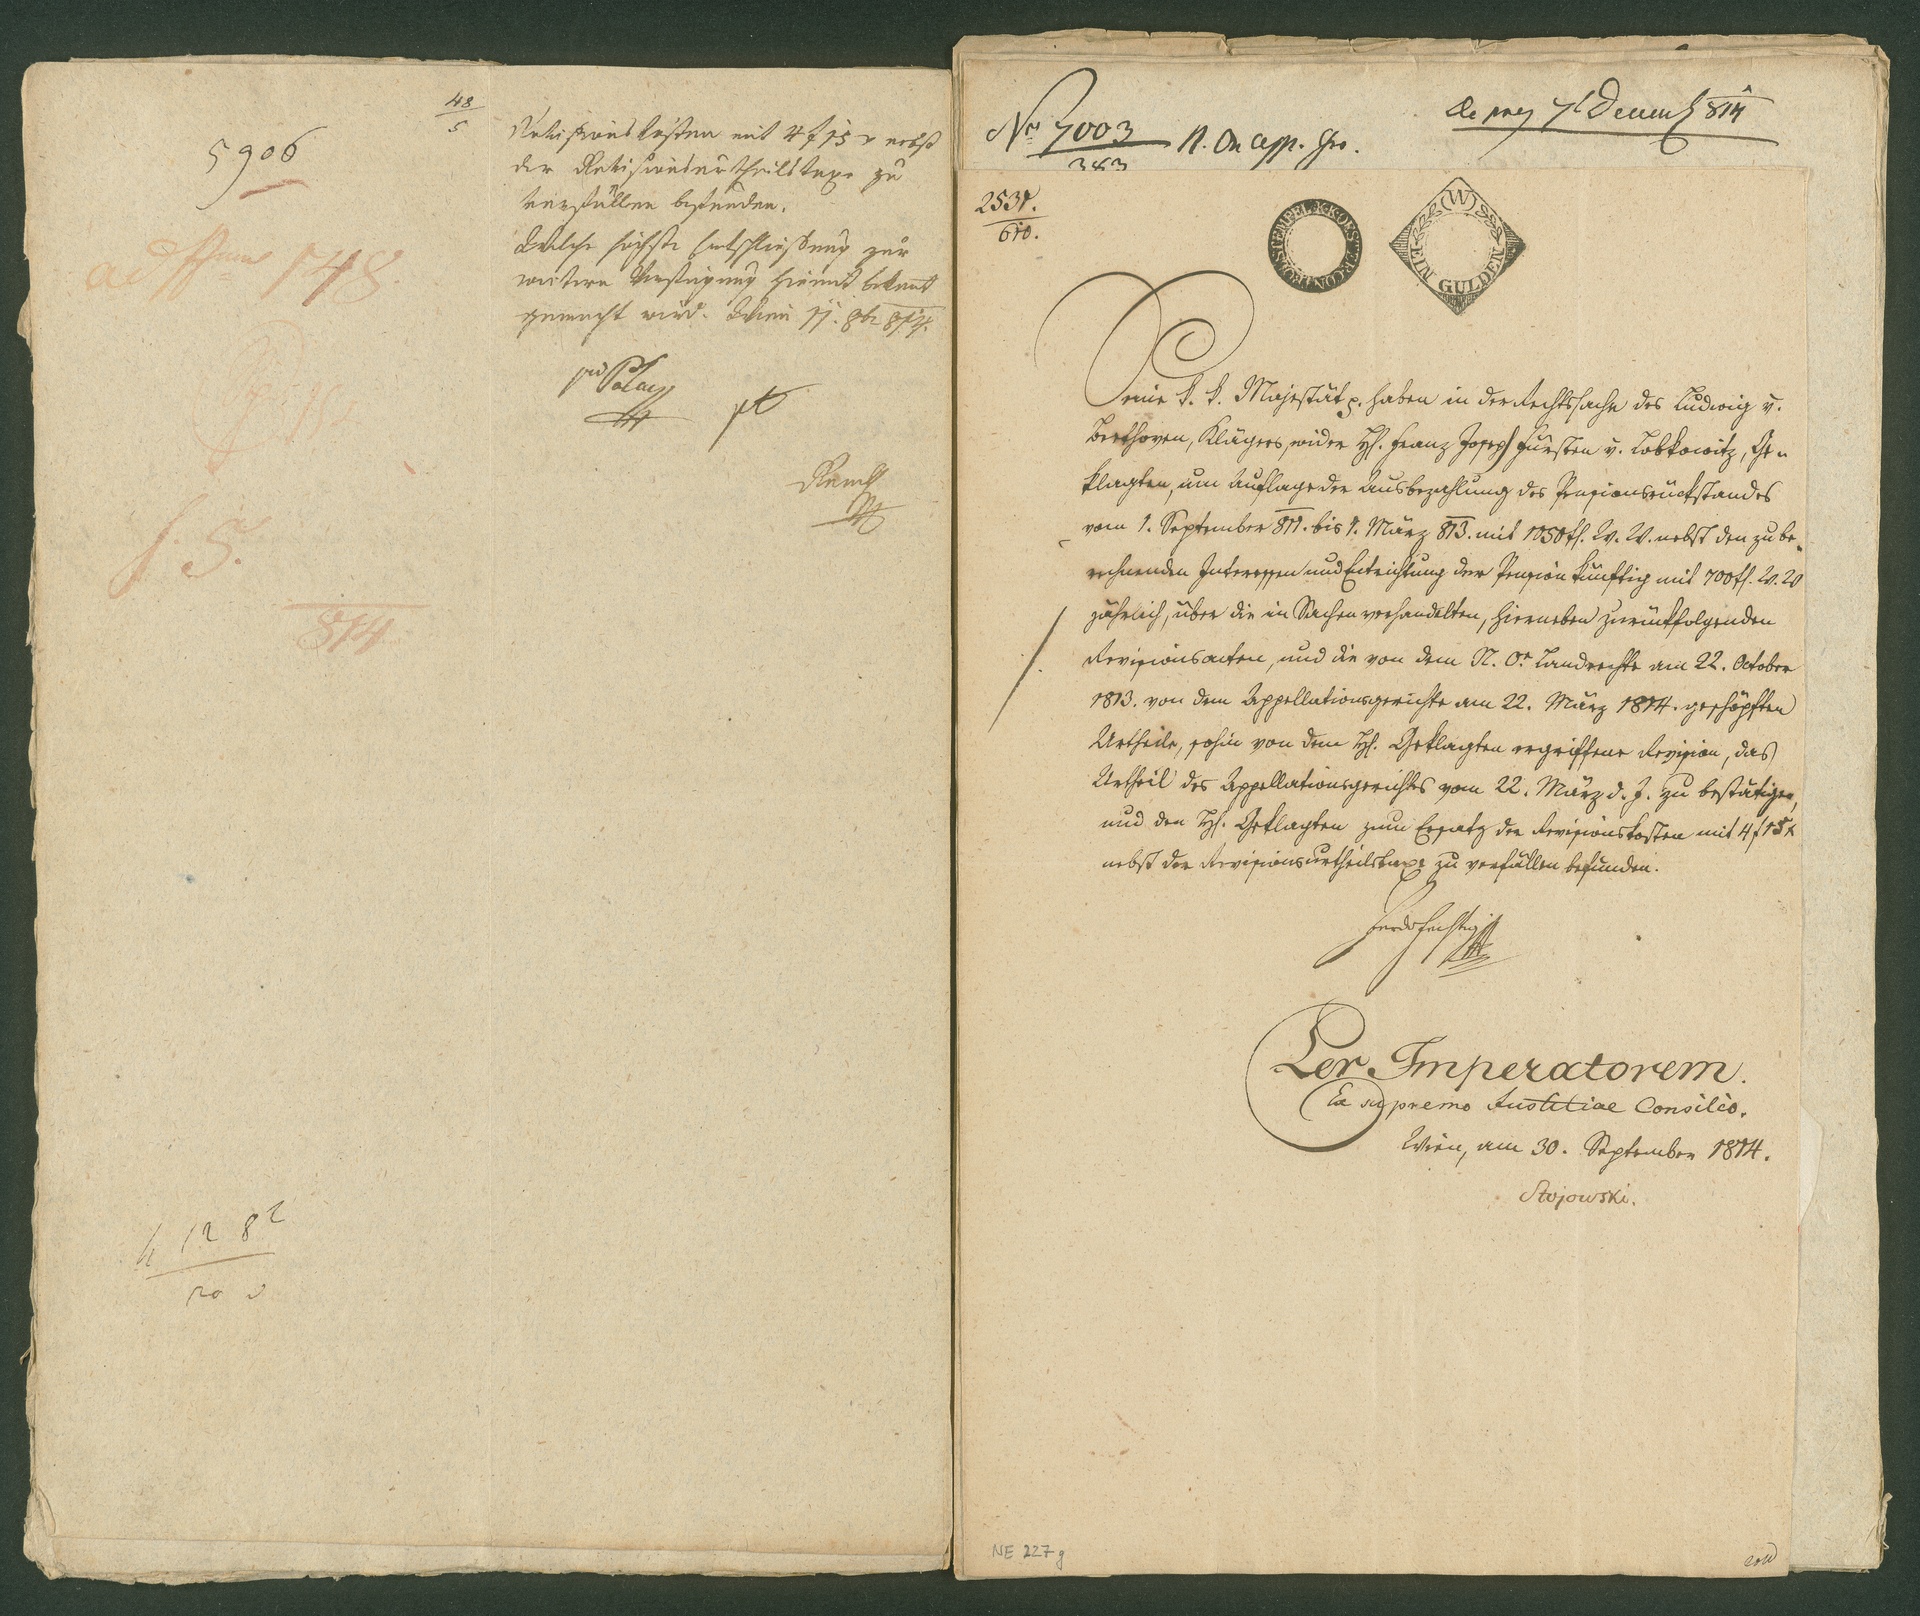 48
5
5906
148.
Revisionskosten mit 4 f 15 x nebst
der Revisionsurtheilstaxe zu
verfällen befunden.
Welche höchste Entschliessung zur
weitern Verfügung hiemit bekannt
gemacht wird. Wien 11. 8br 814.
S. 5.
814
12 8
Nro 7003
383
N. Oe App. Gr.
7t Decemb 814
2531.
610.
(W)
EIN GULDEN
Seine k. k. Majestät p. haben in der Rechtssache des Ludwig v.
Beethoven, Klägers, wider H. Franz Joseph Fürsten v. Lobkowitz, Ge-
klagten, um Auflage der Ausbezahlung des Pensionsrückstandes
vom 1. September 811. bis 1. März 813. mit 1050 fl. W. W. nebst den zu be-
rechnenden Interessen und Entrichtung der Pension künftig mit 700 fl. W. W
jährlich, über die in Sachen verhandelten, hierneben zurückfolgenden
Revisionsacten, und die von dem N. Oe Landrechte am 22. October
1813. von dem Appellationsgerichte am 22. März 1814. geschöpften
Urtheile, sohin von dem H. Geklagten ergriffene Revision, das
Urtheil des Appellationsgerichtes vom 22. März d. J. zu bestätigen,
und den H. Geklagten zum Ersatz der Revisionskosten mit 4 f 15 x
nebst der Revisionsurtheilstaxe zu verfällen befunden.
Per Imperatorem.
Ex supremo Justitiae Consilio.
Wien, am 30. September 1814.
Stojowski.
NE 227 g